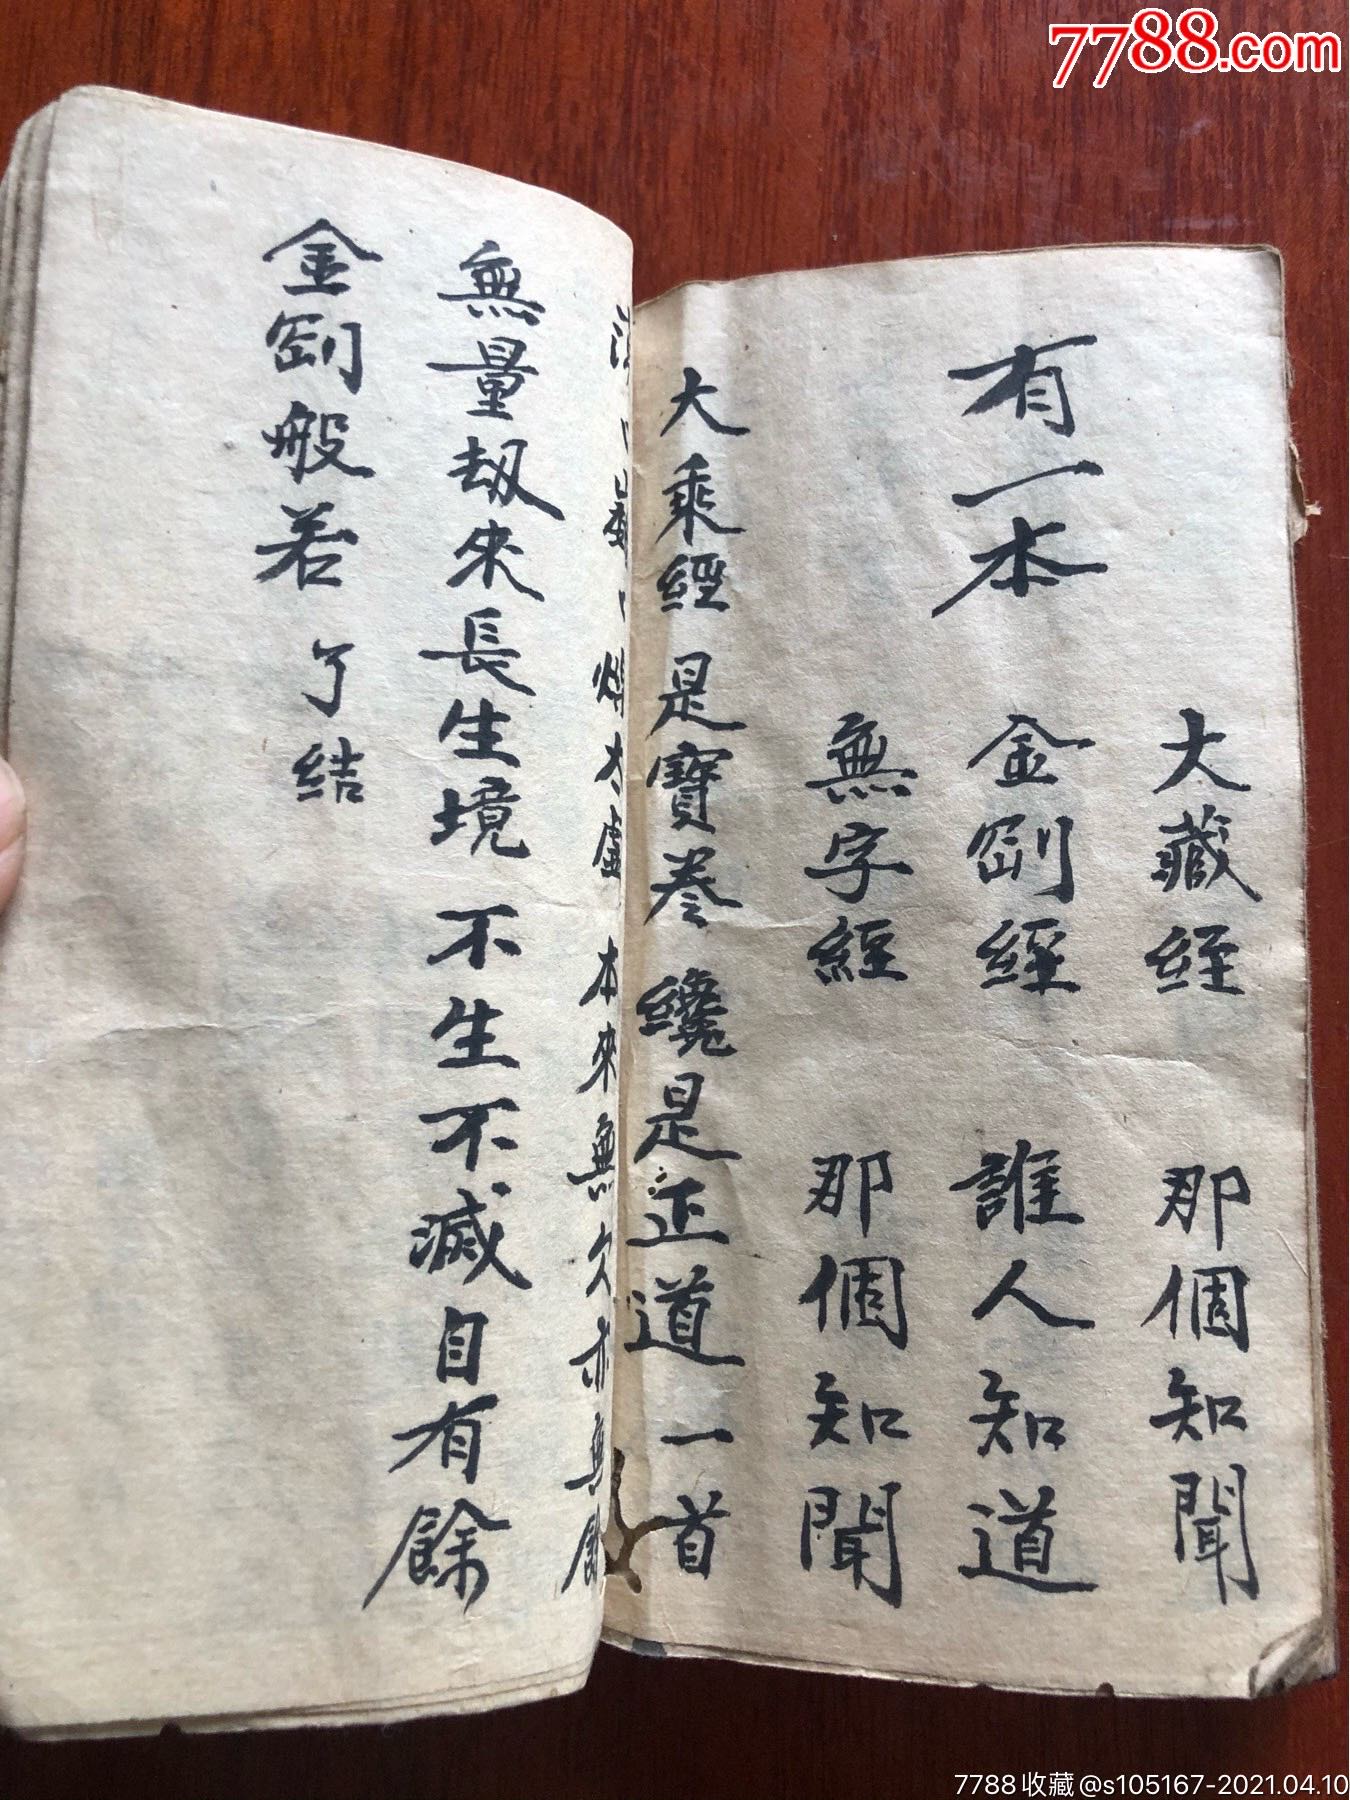 有一本
大藏經 那個知聞
金剛經 誰人知道
無字經 那個知聞
大乘經 是寶卷 纔是正道 一首
太虛 本來無欠亦無餘
無量劫來長生境 不生不滅自有餘
金剛般若 了結
7788.com
7788收藏@s105167-2021.04.10